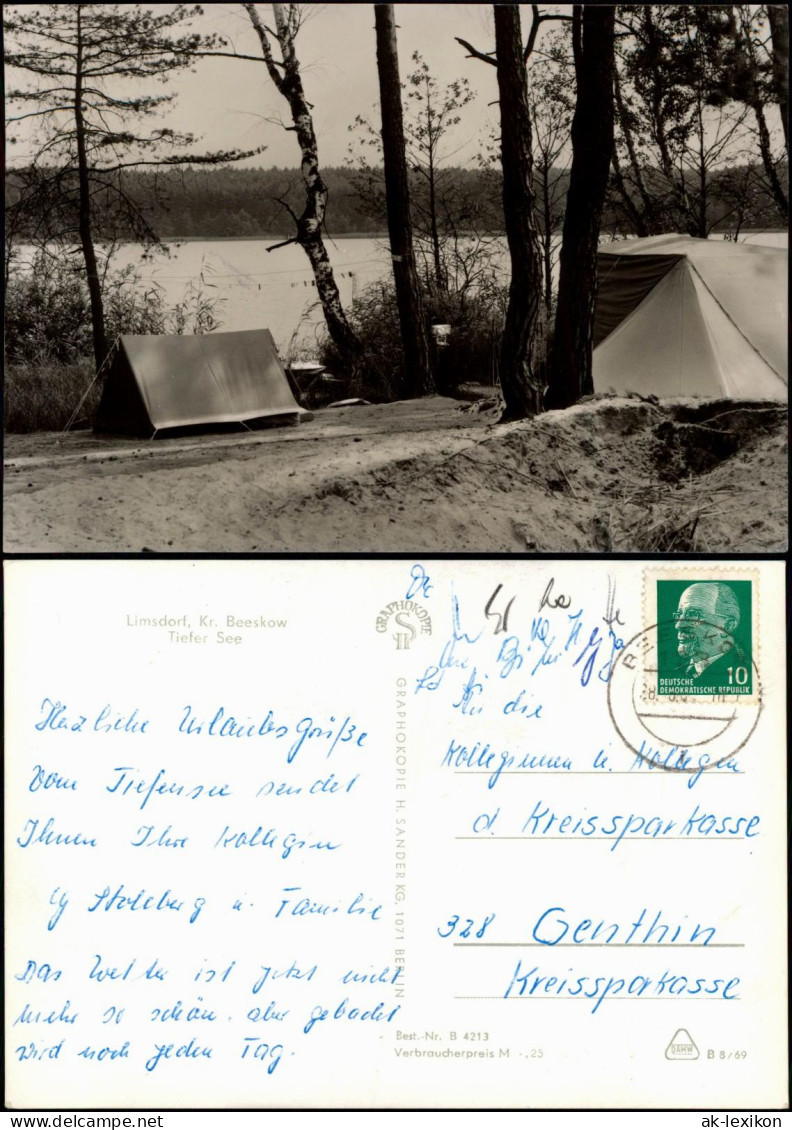 Limsdorf, Kr. Beeskow
Tiefer See
GRAPHOKOPIE
H
GRAPHOKOPIE H. SANDER KG, 1071 BERLIN
10
DEUTSCHE
DEMOKRATISCHE REPUBLIK
Herzliche Urlaubsgrüße
Vom Tiefensee sendet
Ihnen Ihre Kollegin
Stolzberg u. Familie
Das Wetter ist jetzt nicht
mehr so schön, aber gebadet
wird noch jeden Tag.
An die
Kolleginnen u. Kollegen
d. Kreissparkasse
328 Genthin
Kreissparkasse
Best.-Nr. B 4213
Verbraucherpreis M -,25
DAMW
B 8/69
ak-lexikon